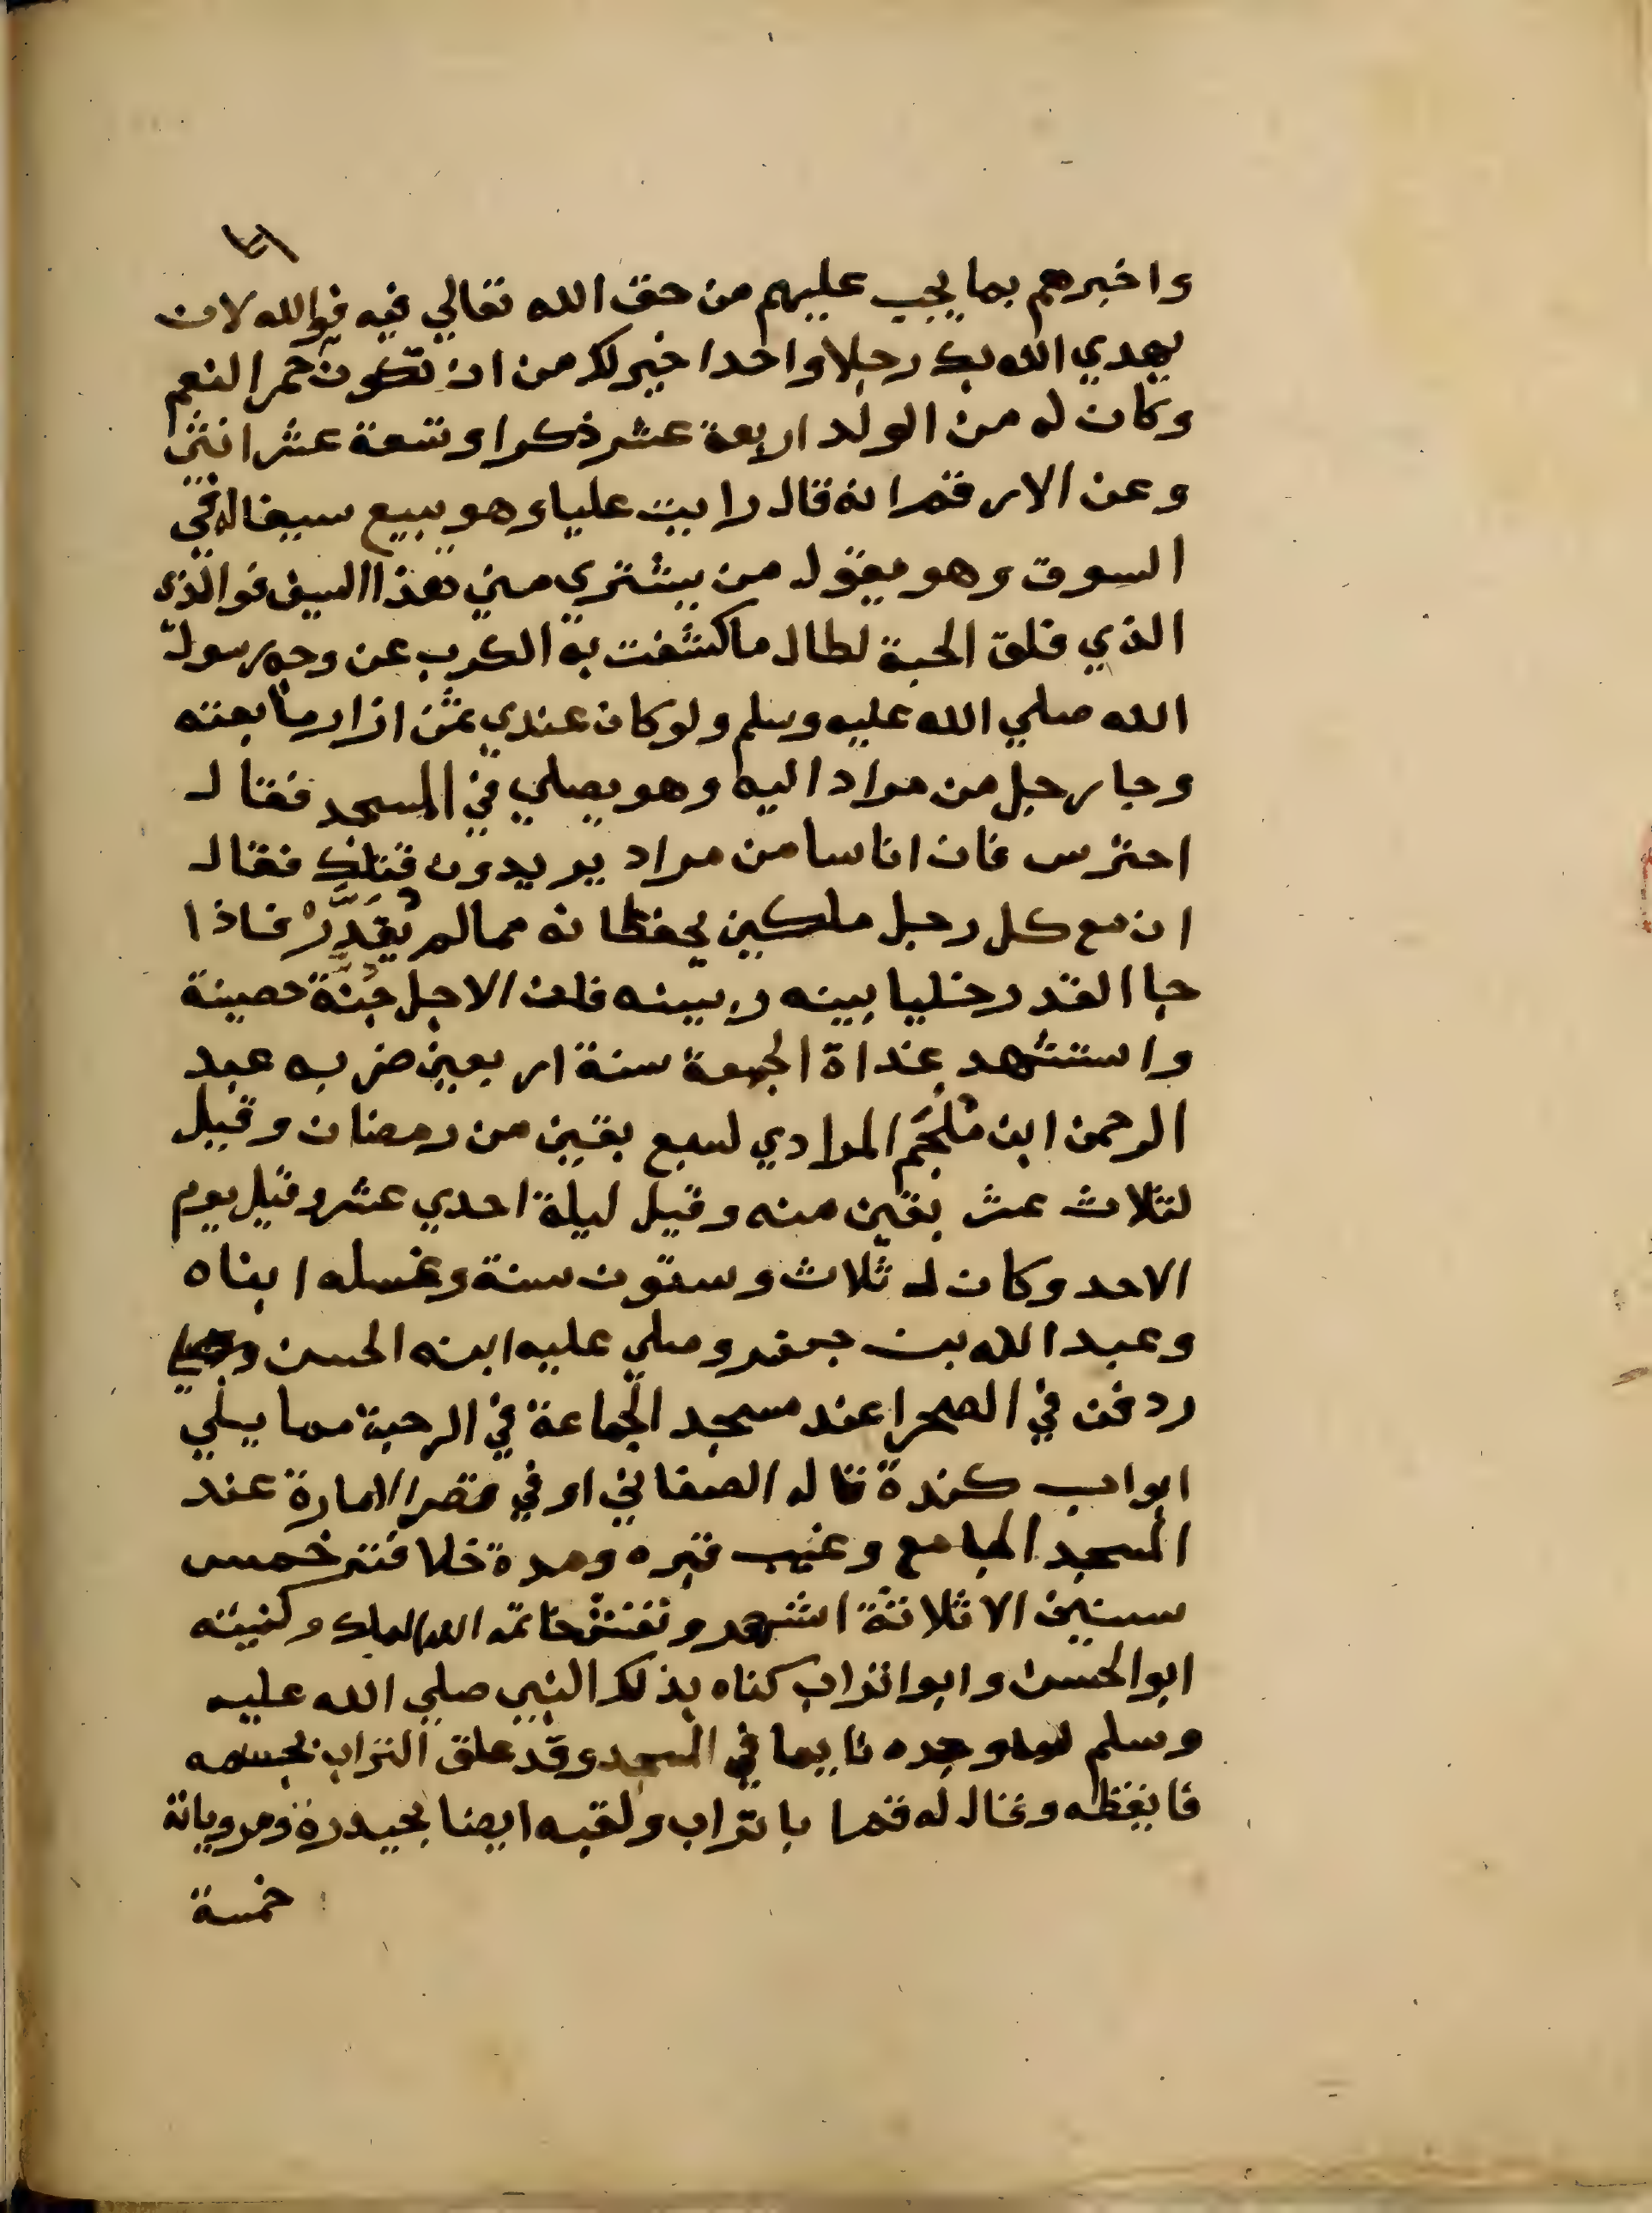 واخبرهم بما يجب عليهم من حق الله تعالي فيه فوالله لان
يهدي الله بك رجلا واحدا خير لك من ان تكون حمر النعم
وكان له من الولد اربعة عشر ذكرا وتسعة عشر انثى
وعن الارقم انه قال رايت عليا وهو يبيع سيفا له في
السوق وهو يقول من يشتري مني هذا السيف فوالذي
الذي فلق الحبة لطال ما كشفت به الكرب عن وجه رسول
الله صلي الله عليه وسلم ولو كان عندي ثمن ازار ما بعته
وجا رجل من مراد اليه وهو يصلي في المسجد فقال
احترس فان اناسا من مراد يريدون قتلك فقال
ان مع كل رجل ملكين يحفظانه مما لم يُقَدَّرْ فاذا
جا القدر خليا بينه وبينه فان الاجل جُنَّة حصينة
واستشهد غداة الجمعة سنة اربعين ضربه عبد
الرحمن ابن مُلْجَم المرادي لسبع بقين من رمضان وقيل
لثلاث عشر بقين منه وقيل ليلة احدي عشر وقيل يوم
الاحد وكان له ثلاث وستون سنة وغسله ابناه
وعبد الله بن جعفر وصلي عليه ابنه الحسن
ودفن في الصحرا عند مسجد الجماعة في الرحبة مما يلي
ابواب كندة قاله الصغاني او في قصر الامارة عند
المسجد الجامع وغيب قبره ومدة خلافته خمس
سنين الا ثلاثة اشهر ونقش خاتمه الله الملك وكنيته
ابو الحسن وابوا تراب كناه بذلك النبي صلي الله عليه
وسلم لما وجده نايما في المسجد وقد علق التراب بجسمه
فايقظه وقال له قم ابا تراب ولقبه ايضا بحيدرة ومروياته
خمسة